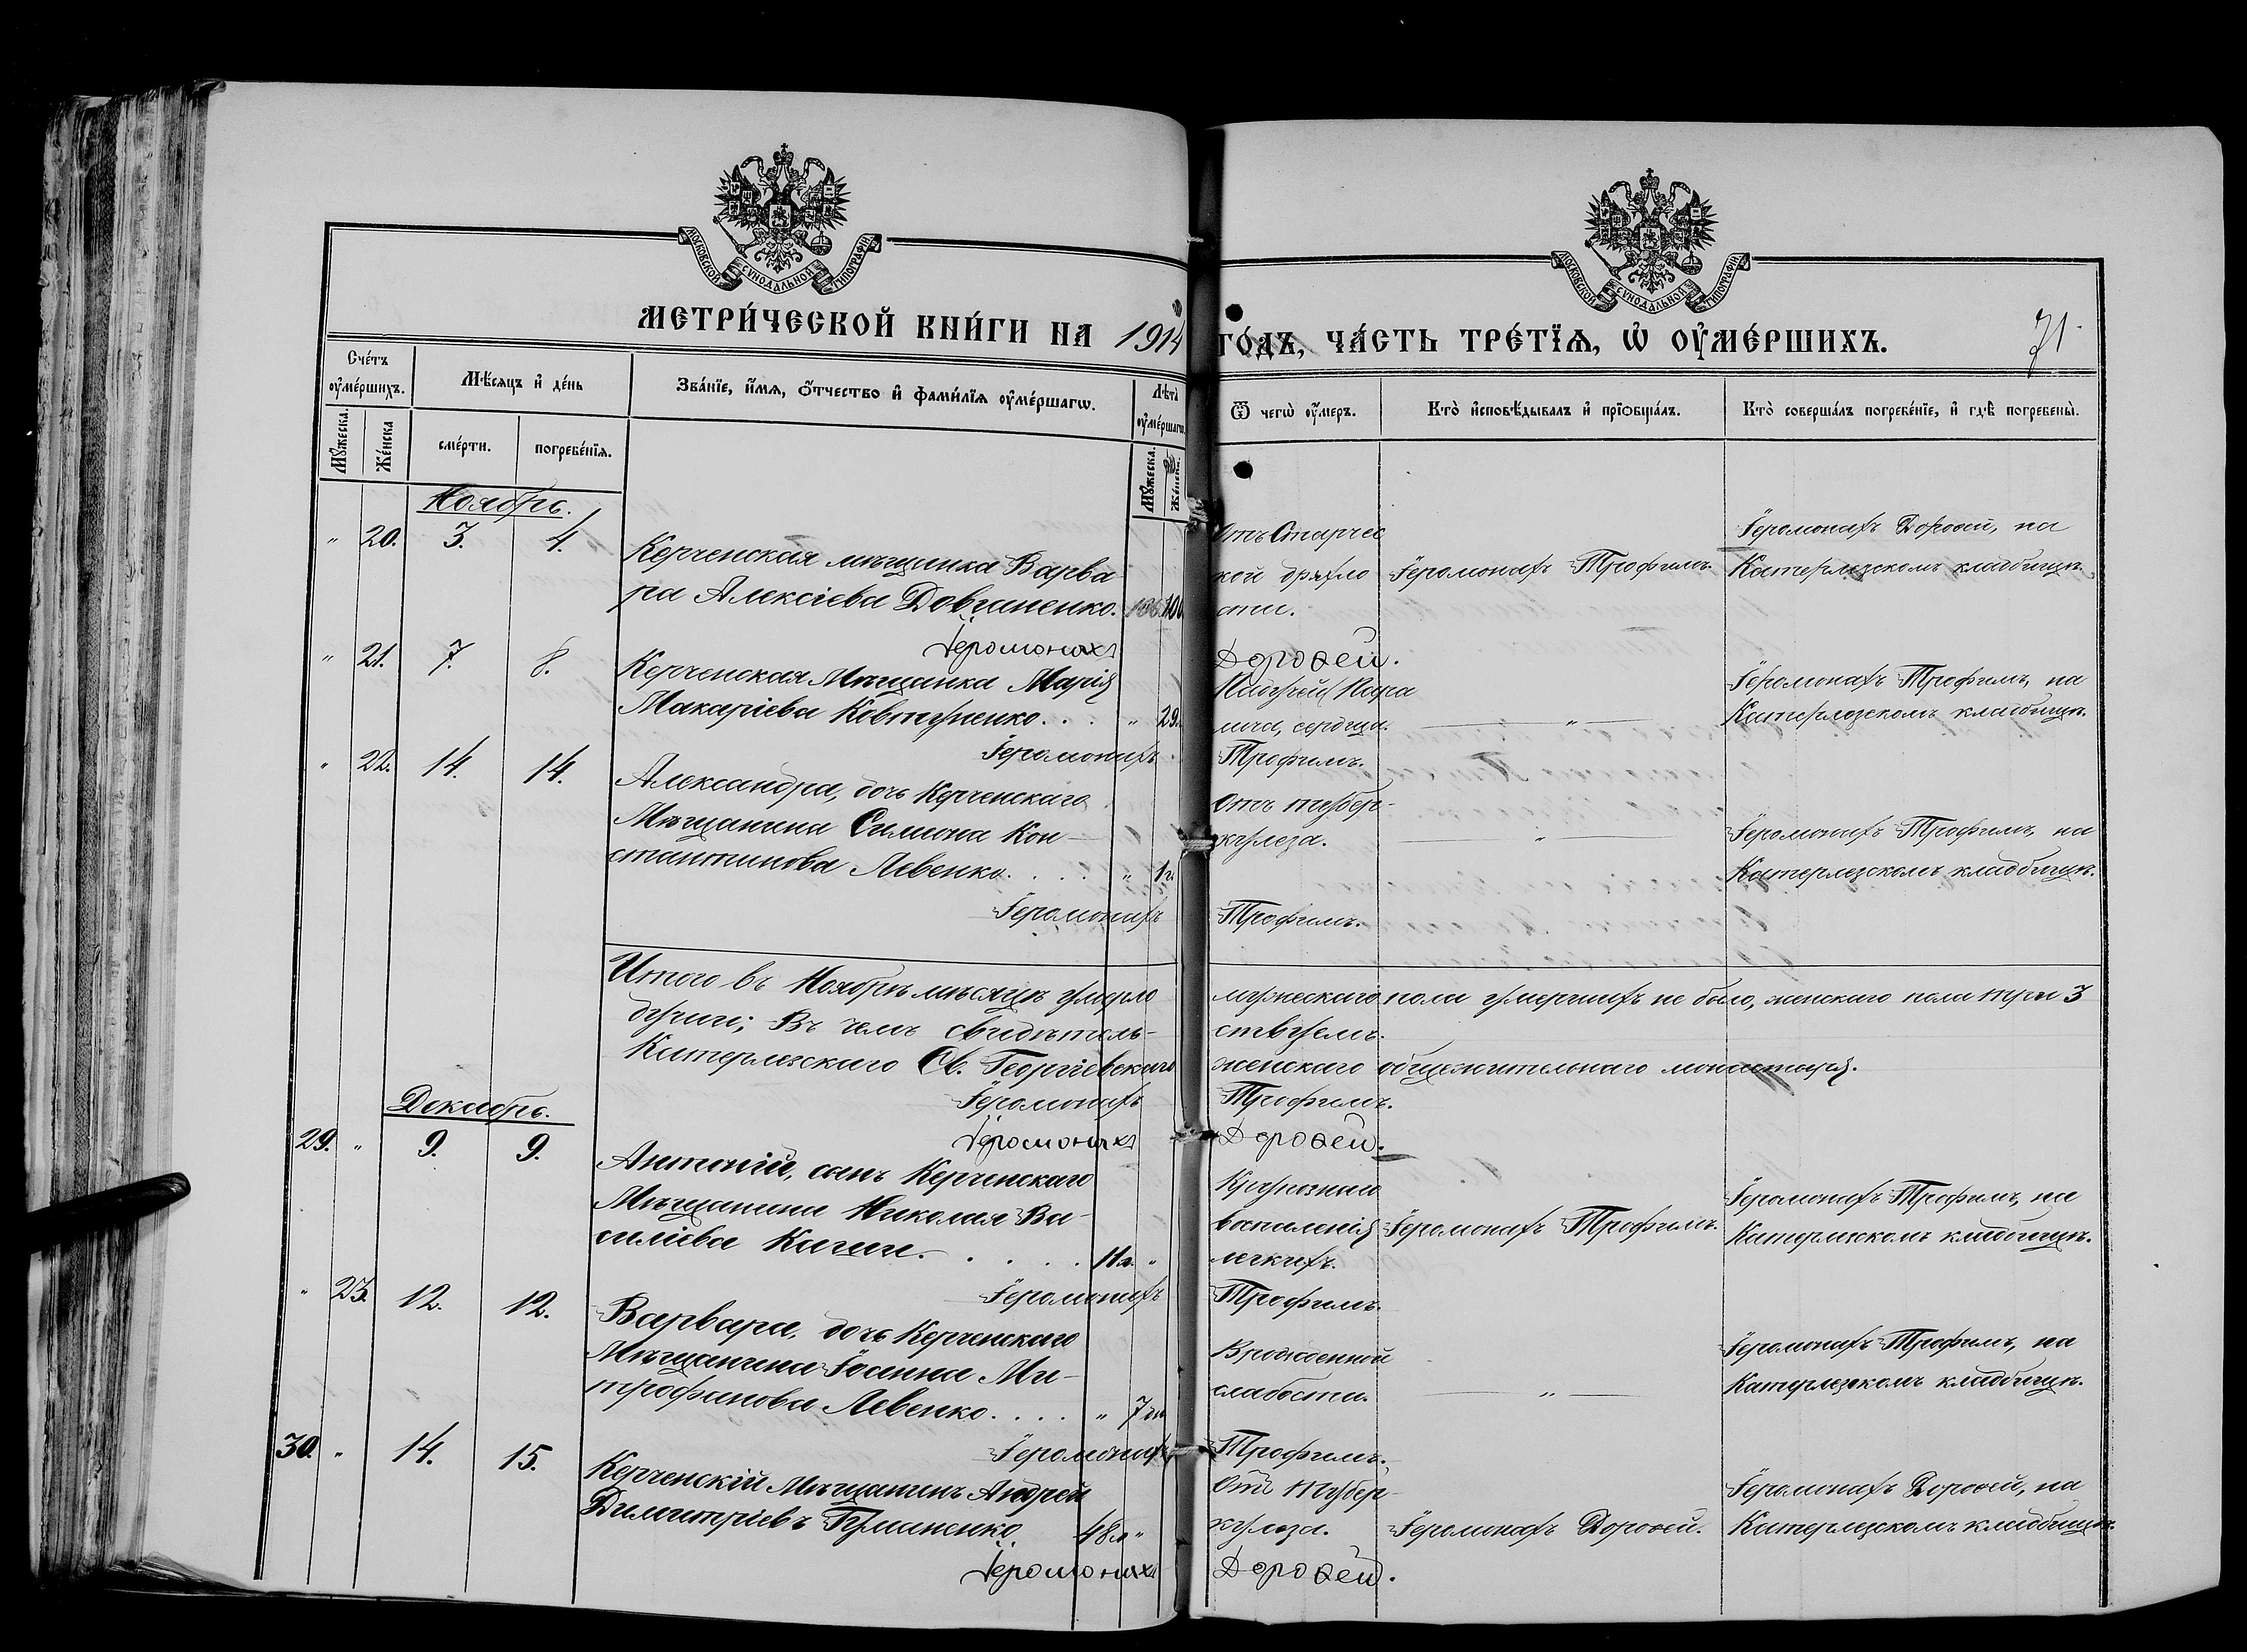 МОСКОВСКОЙ СУНОДАЛЬНОЙ ТИПОГРАФІИ
МОСКОВСКОЙ СУНОДАЛЬНОЙ ТИПОГРАФІИ
МЕТРИ́ЧЕСКОЙ КНИ́ГИ НА 1914 ГО́ДЪ, ЧА́СТЬ ТРЕ́ТЇѦ, Ѡ҆ ОУ҆МЕ́РШИХЪ.
71
Сче́тъ оу҆ме́ршихъ.
Мѣ́сяцъ и҆ де́нь
Зва́нїе, и҆́мѧ, ѻ҆́тчество и҆ фами́лїѧ оу҆ме́ршагѡ.
Лѣ́та̀ оу҆ме́ршагѡ.
Ѿ чегѡ̀ оу҆́меръ.
Кто̀ и҆сповѣ́дывалъ и҆ прїѻбща́лъ.
Кто̀ соверша́лъ погребе́нїе, и҆ гдѣ̀ погребены̀.
Мꙋ́жеска.
Же́нска
сме́рти.
погребе́нїѧ.
Мꙋ́жеска.
Же́нска.
Ноябрь.
" 20. 3. 4.
Керченская мѣщанка Варва-
ра Алексіева Довганенко. 100
Отъ Старчес
кой дряхло
сти.
Іеромонахъ Трофимъ.
Іеромонахъ Дороѳей, на
Катерлезскомъ кладбищѣ.
Іеромонахъ Дороѳей.
" 21. 7. 8.
Керченская Мѣщанка Марія
Макаріева Ковтуненко. . . " 29.
сердца.
"
Іеромонахъ Трофимъ, на
Катерлезскомъ кладбищѣ.
Іеромонахъ Трофимъ.
" 22. 14. 14.
Александра, дочь Керченскаго
Мѣщанина Симона Кон-
стантинова Левенко. . . . " 1г.
Отъ тубер-
кулеза.
"
Іеромонахъ Трофимъ, на
Катерлезскомъ кладбищѣ.
Іеромонахъ Трофимъ.
Итого въ Ноябрѣ мѣсяцѣ умерло мужескаго пола умершихъ не было, женскаго пола три 3
души; Въ чемъ свидѣтель-ствуемъ.
Катерлезскаго Св. Георгіевскаго женскаго общежительнаго монастыря.
Іеромонахъ Трофимъ.
Іеромонахъ Дороѳей.
Декабрь.
29. " 9. 9.
Антоній, сынъ Керченскаго
Мѣщанина Николая Ва-
силіева . . . . . 11л. "
Крупознаго
воспаленія
легкихъ.
Іеромонахъ Трофимъ.
Іеромонахъ Трофимъ, на
Катерлезскомъ кладбищѣ.
Іеромонахъ Трофимъ.
" 23. 12. 12.
Варвара, дочь Керченскаго
Мѣщанина Іоанна Ми-
трофанова Левенко. . . . " 7
Врожденной
слабости.
"
Іеромонахъ Трофимъ, на
Катерлезскомъ кладбищѣ.
Іеромонахъ Трофимъ.
30. " 14. 15.
Керченскій Мѣщанинъ Андрей
Димитріевъ Гуманенко 48л. "
Отъ тубер-
кулеза.
Іеромонахъ Дороѳей.
Іеромонахъ Дороѳей, на
Катерлезскомъ кладбищѣ.
Іеромонахъ Дороѳей.